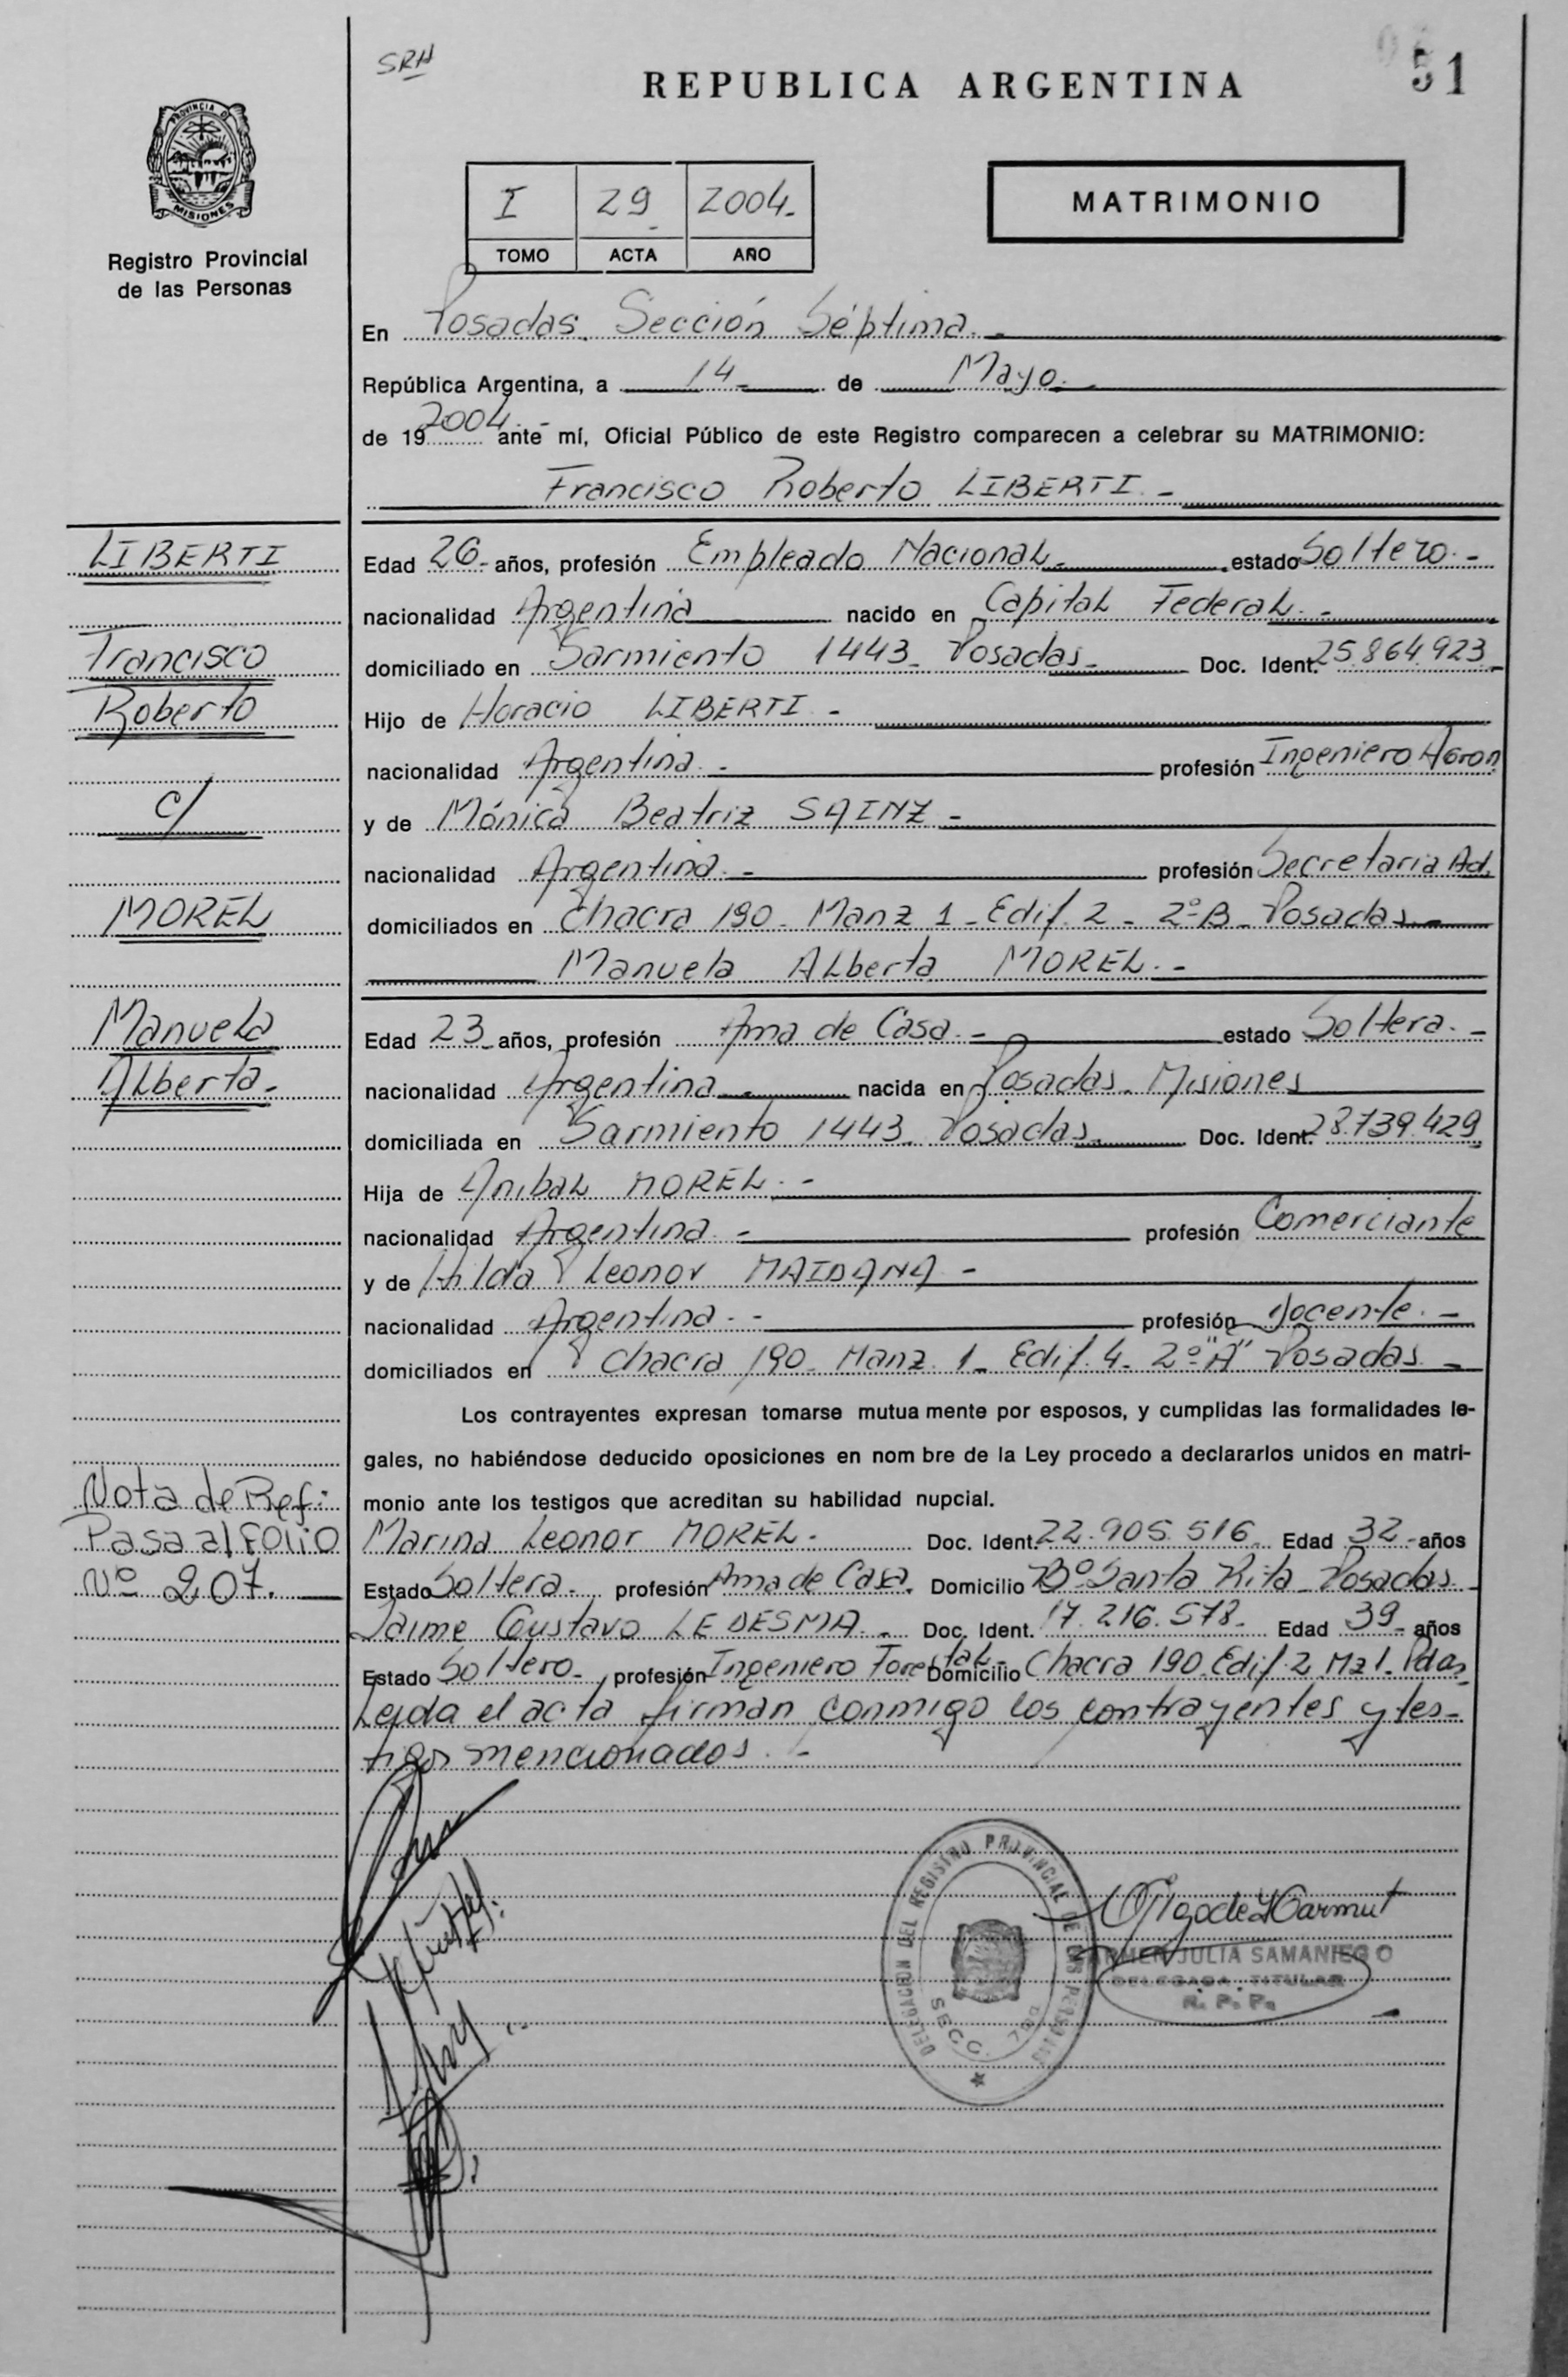 SRH
51
REPUBLICA ARGENTINA
PROVINCIA DE
MISIONES
Registro Provincial
de las Personas
I 29 2004.-
TOMO ACTA AÑO
MATRIMONIO
En Posadas. Sección Séptima.-
República Argentina, a 14- de Mayo.-
de 19 2004.- ante mí, Oficial Público de este Registro comparecen a celebrar su MATRIMONIO:
Francisco Roberto LIBERTI.-
LIBERTI
Edad 26- años, profesión Empleado Nacional.- estado Soltero.-
nacionalidad Argentina nacido en Capital Federal.-
Francisco
domiciliado en Sarmiento 1443- Posadas.- Doc. Ident. 25.864.923-
Roberto
Hijo de Horacio LIBERTI.-
nacionalidad Argentina.- profesión Ingeniero Agron
c/
y de Mónica Beatriz SAINZ-
nacionalidad Argentina.- profesión Secretaria Ad.
MOREL
domiciliados en Chacra 190- Manz 1- Edif. 2- 2º B- Posadas.-
Manuela Alberta MOREL.-
Manuela
Edad 23- años, profesión Ama de Casa.- estado Soltera.-
Alberta-
nacionalidad Argentina.- nacida en Posadas- Misiones
domiciliada en Sarmiento 1443- Posadas- Doc. Ident. 28.739.429
Hija de Anibal MOREL.-
nacionalidad Argentina.- profesión Comerciante
y de Hilda Leonor MAIDANA-
nacionalidad Argentina.- profesión Docente.-
domiciliados en Chacra 190- Manz. 1- Edif. 4- 2º "A" Posadas.-
Los contrayentes expresan tomarse mutua mente por esposos, y cumplidas las formalidades le-
gales, no habiéndose deducido oposiciones en nom bre de la Ley procedo a declararlos unidos en matri-
monio ante los testigos que acreditan su habilidad nupcial.
Nota de Ref:
Pasa al Folio
Nº 207.
Marina Leonor MOREL- Doc. Ident. 22.905.516- Edad 32- años
Estado Soltera- profesión Ama de Casa. Domicilio Bº Santa Rita- Posadas-
Jaime Gustavo LEDESMA.- Doc. Ident. 17.216.578- Edad 39- años
Estado Soltero- profesión Ingeniero Forestal- Domicilio Chacra 190. Edif. 2 Mz 1- Pdas.
Leída el acta firman conmigo los contrayentes y tes-
tigos mencionados.-
DELEGACION DEL REGISTRO PROVINCIAL DE LAS PERSONAS
SECC. 7
JULIA SAMANIEGO
DELEGADA TITULAR
R. P. P.